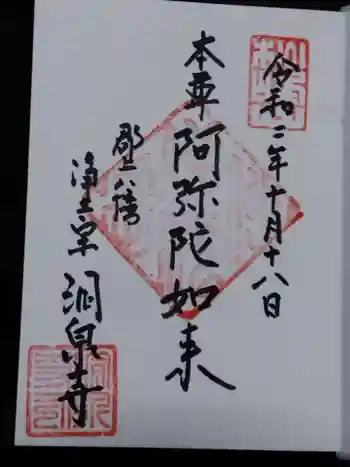 令和二年十月十八日
本尊
阿弥陀如来
郡上八幡
浄土宗 洞泉寺